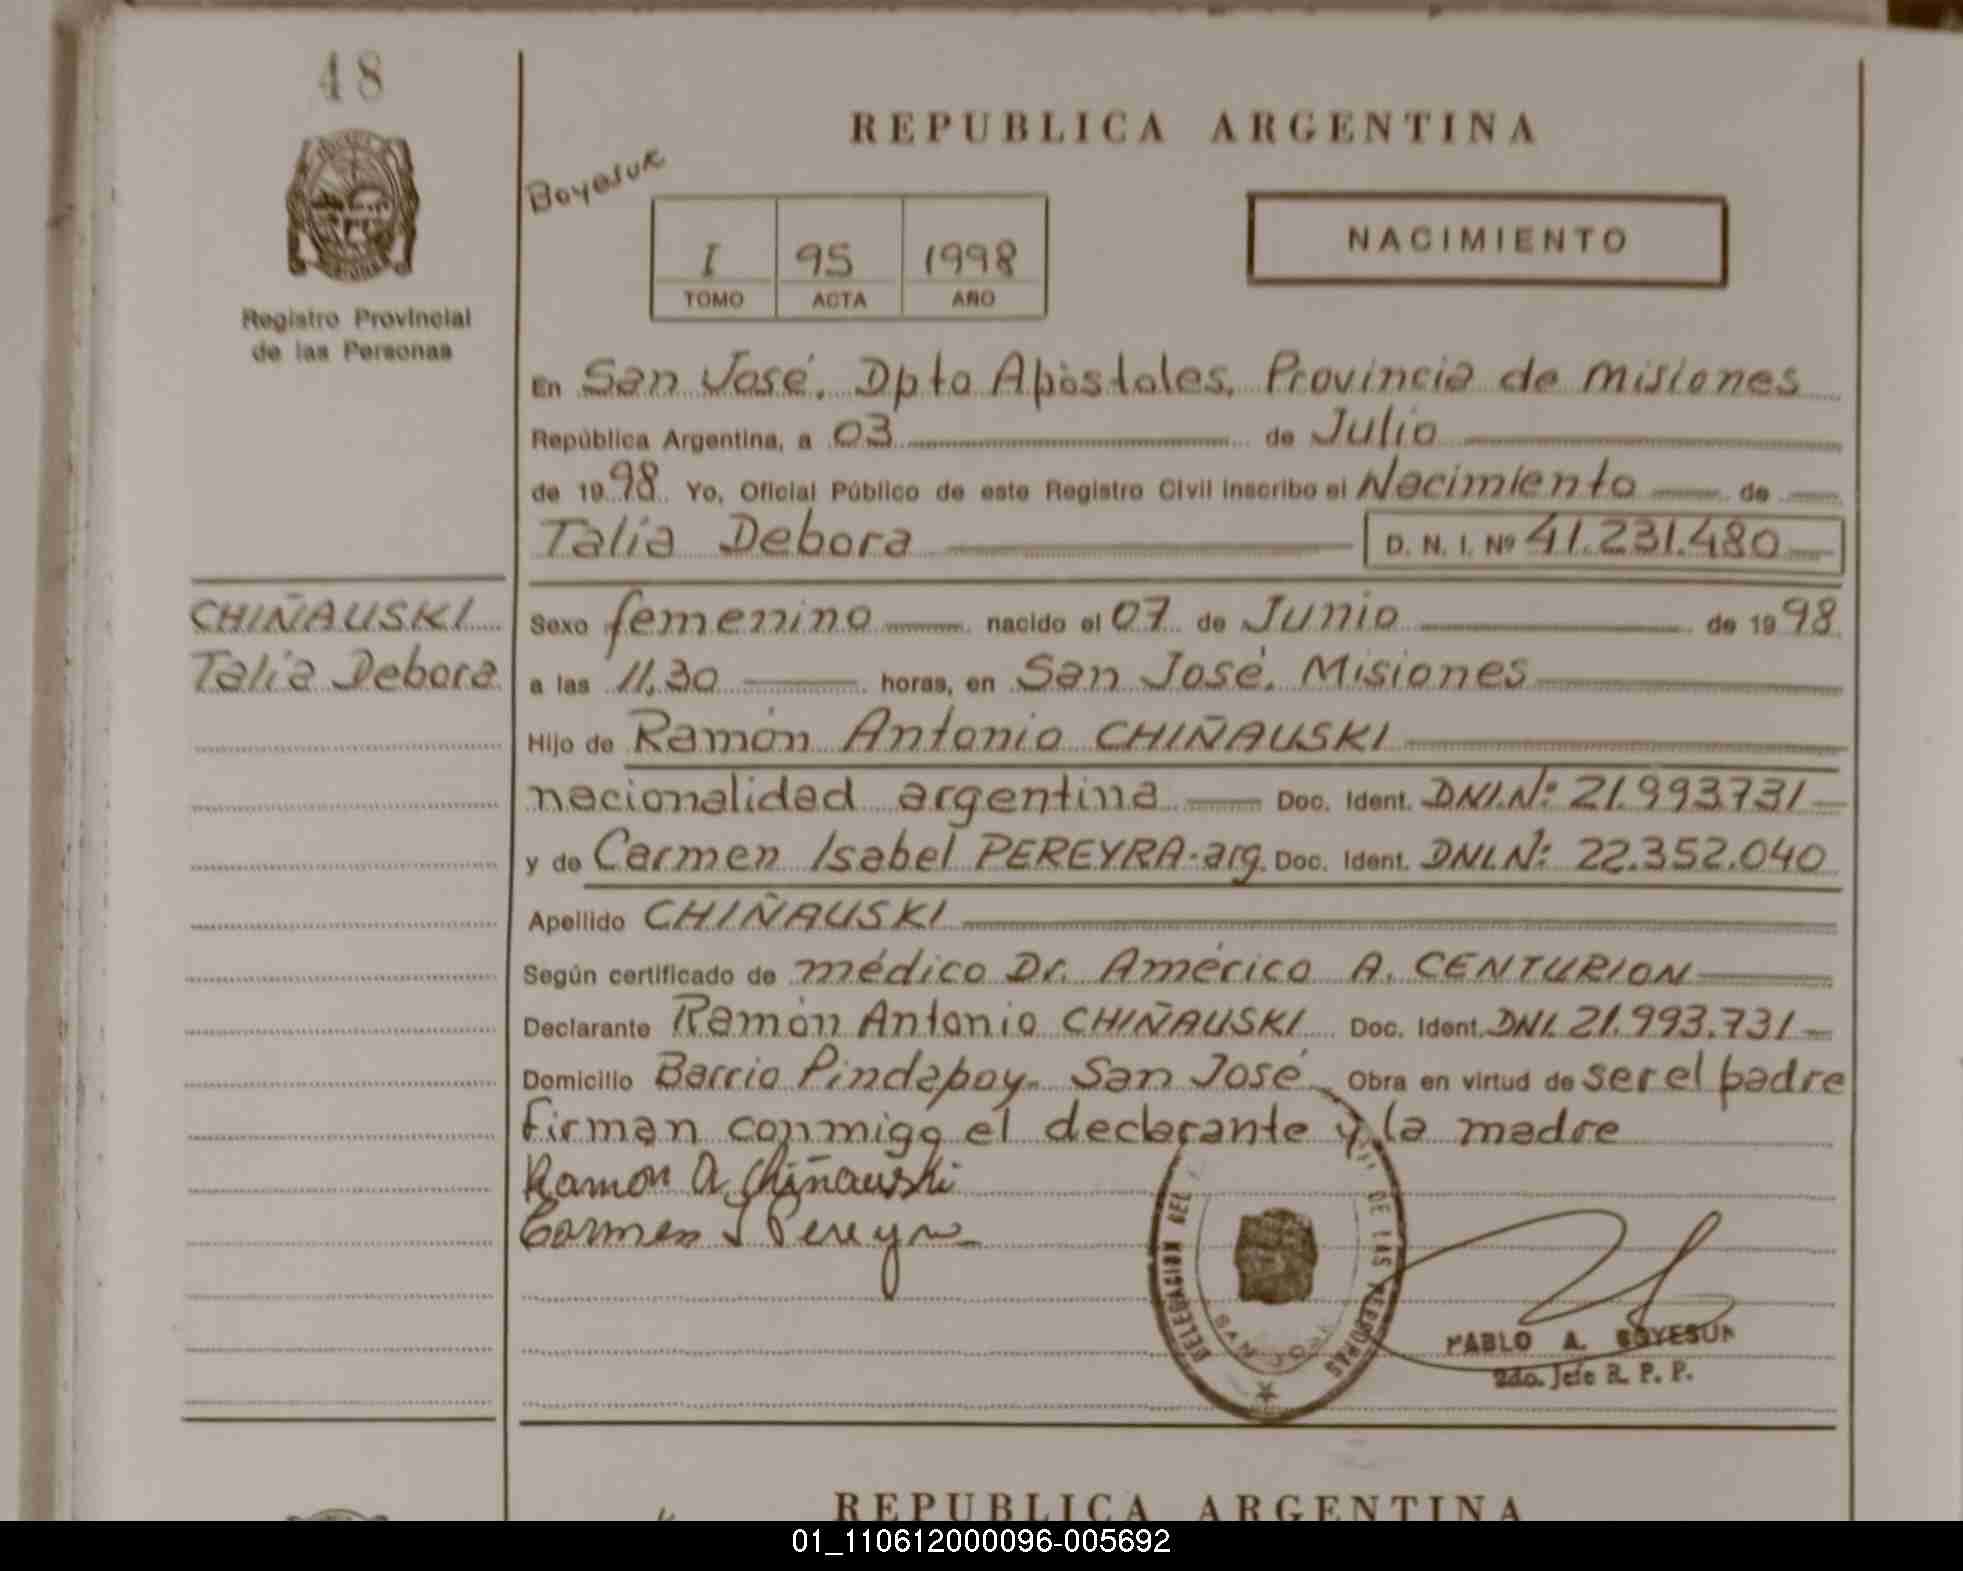 48
REPUBLICA ARGENTINA
Boyesuk
I 95 1998
TOMO ACTA AÑO
NACIMIENTO
Registro Provincial
de las Personas
En San José, Dpto Apóstoles, Provincia de Misiones
República Argentina, a 03 de Julio
de 1998 Yo, Oficial Público de este Registro Civil inscribo el Nacimiento de
Talia Debora D. N. I. Nº 41.231.480
CHIÑAUSKI
Talia Debora
Sexo femenino nacido el 07 de Junio de 1998
a las 11,30 horas, en San José, Misiones
Hijo de Ramón Antonio CHIÑAUSKI
nacionalidad argentina Doc. Ident. DNI.Nº: 21.993.731
y de Carmen Isabel PEREYRA-arg. Doc. Ident. DNI.Nº: 22.352.040
Apellido CHIÑAUSKI
Según certificado de médico Dr. Américo A. CENTURION
Declarante Ramón Antonio CHIÑAUSKI Doc. Ident. DNI. 21.993.731
Domicilio Barrio Pindapoy- San José Obra en virtud de ser el padre
firman conmigo el declarante y la madre
Ramon A. Chiñauski
Carmen I Pereyra
DELEGACION DEL DE LAS PERSONAS
SAN JOSE
PABLO A. BOYESUK
2do. Jefe R. P. P.
REPUBLICA ARGENTINA
01_110612000096-005692